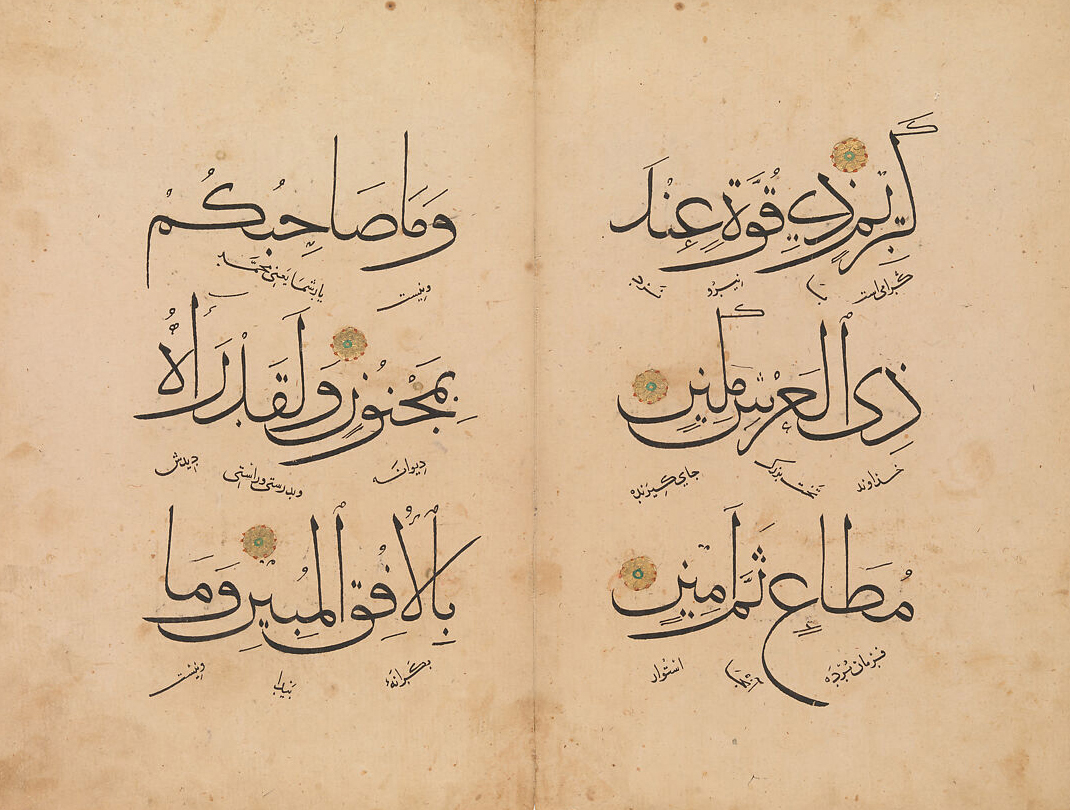 كَرِيمٍ ذِي قُوَّةٍ عِنْدَ
گرامی است با نیرو نزد
ذِي الْعَرْشِ مَكِينٍ
خداوند تخت بزرک جای گیرنده
مُطَاعٍ ثَمَّ أَمِينٍ
فرمان برده آنجا استوار
وَمَا صَاحِبُكُمْ
ونیست یار شما یعنی محمد
بِمَجْنُونٍ وَلَقَدْ رَآهُ
دیوانه وبدرستی وراستی دیدش
بِالْأُفُقِ الْمُبِينِ وَمَا
بکرانهٔ پیدا ونیست